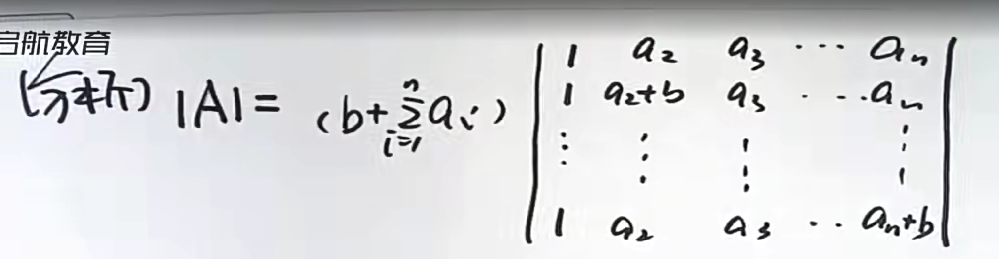 启航教育
[分析] |A| = (b+∑ⁿᵢ₌₁aᵢ) | 1 a₂ a₃ ⋯ aₙ |
| 1 a₂+b a₃ ⋯ aₙ |
| ⋮ ⋮ ⋮ ⋮ |
| 1 a₂ a₃ ⋯ aₙ+b |